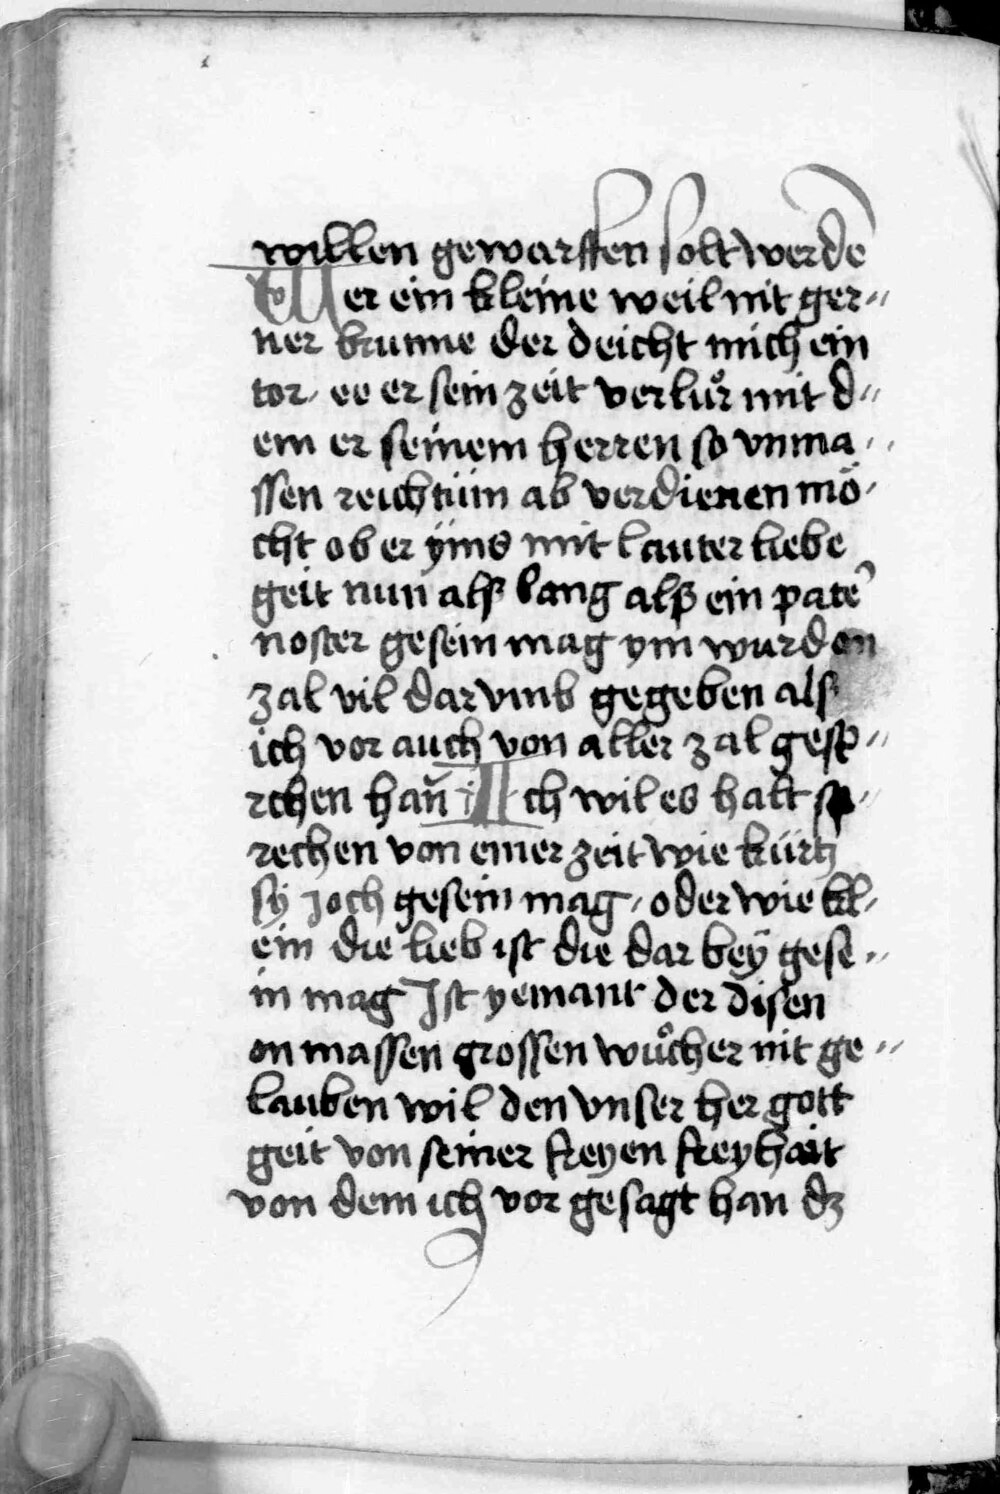 willen gewarffen solt werdē
Wer ein kleine weil nit ger〃
ner brunne der deicht mich ein
tor, ee er sein zeit verlůr mit d〃
em er seinem herren so vnma〃
ssen reichtüm ab verdienen mö,
cht ob er ÿms mit lauter liebe
geit nun alß lang alß ein pate͛
noster gesein mag ym wurd on
zal vil dar vmb gegeben alß
ich vor auch von aller zal gesp〃
rchen han̄ Ich wil es halt sp〃
rechen von einer zeit wie kürtz
sÿ joch gesein mag, oder wie kl,
ein die lieb ist die dar beÿ gese〃
in mag Ist yemant der disen
on massen grossen wůcher nit ge〃
lauben wil den vnser her gott
geit von seiner freyen freyhait
von dem ich vor gesagt han dz